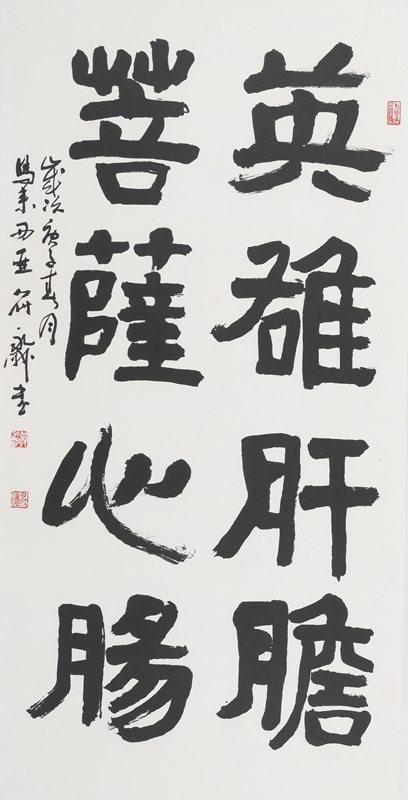 英雄肝膽
菩薩心腸
歲次庚子春月
馬來西亞符永刚書